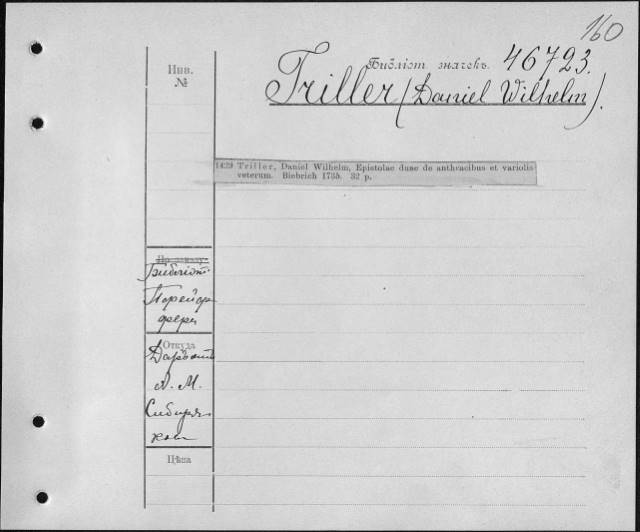 160
Инв.
№
Библіот. значекъ. 46723.
Triller (Daniel Wilhelm).
1429 Triller, Daniel Wilhelm, Epistolae duae de anthracibus et variolis
veterum. Biebrich 1735. 32 p.
По заказу
Библіот.
Порейор
фери
Откуда
Даръ
А. М.
Сибиря-
кова
Цѣна